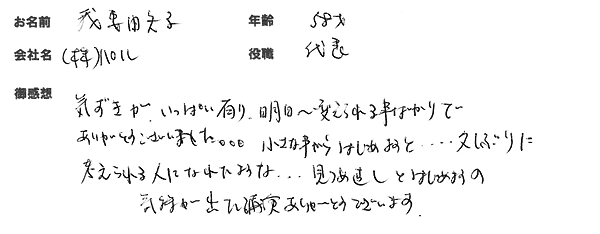 お名前 我妻由矢子 年齢 58才
会社名 (株)ハロル 役職 代表
御感想
気ずきが、いっぱい有り、明日〜変えられる事ばかりで
ありがとうございました。。。 小さな事からはじめようと‥‥久しぶりに
考えられる人になれたような... 見つめ直しとはじめようの
気持が出た講演ありがとうございます.